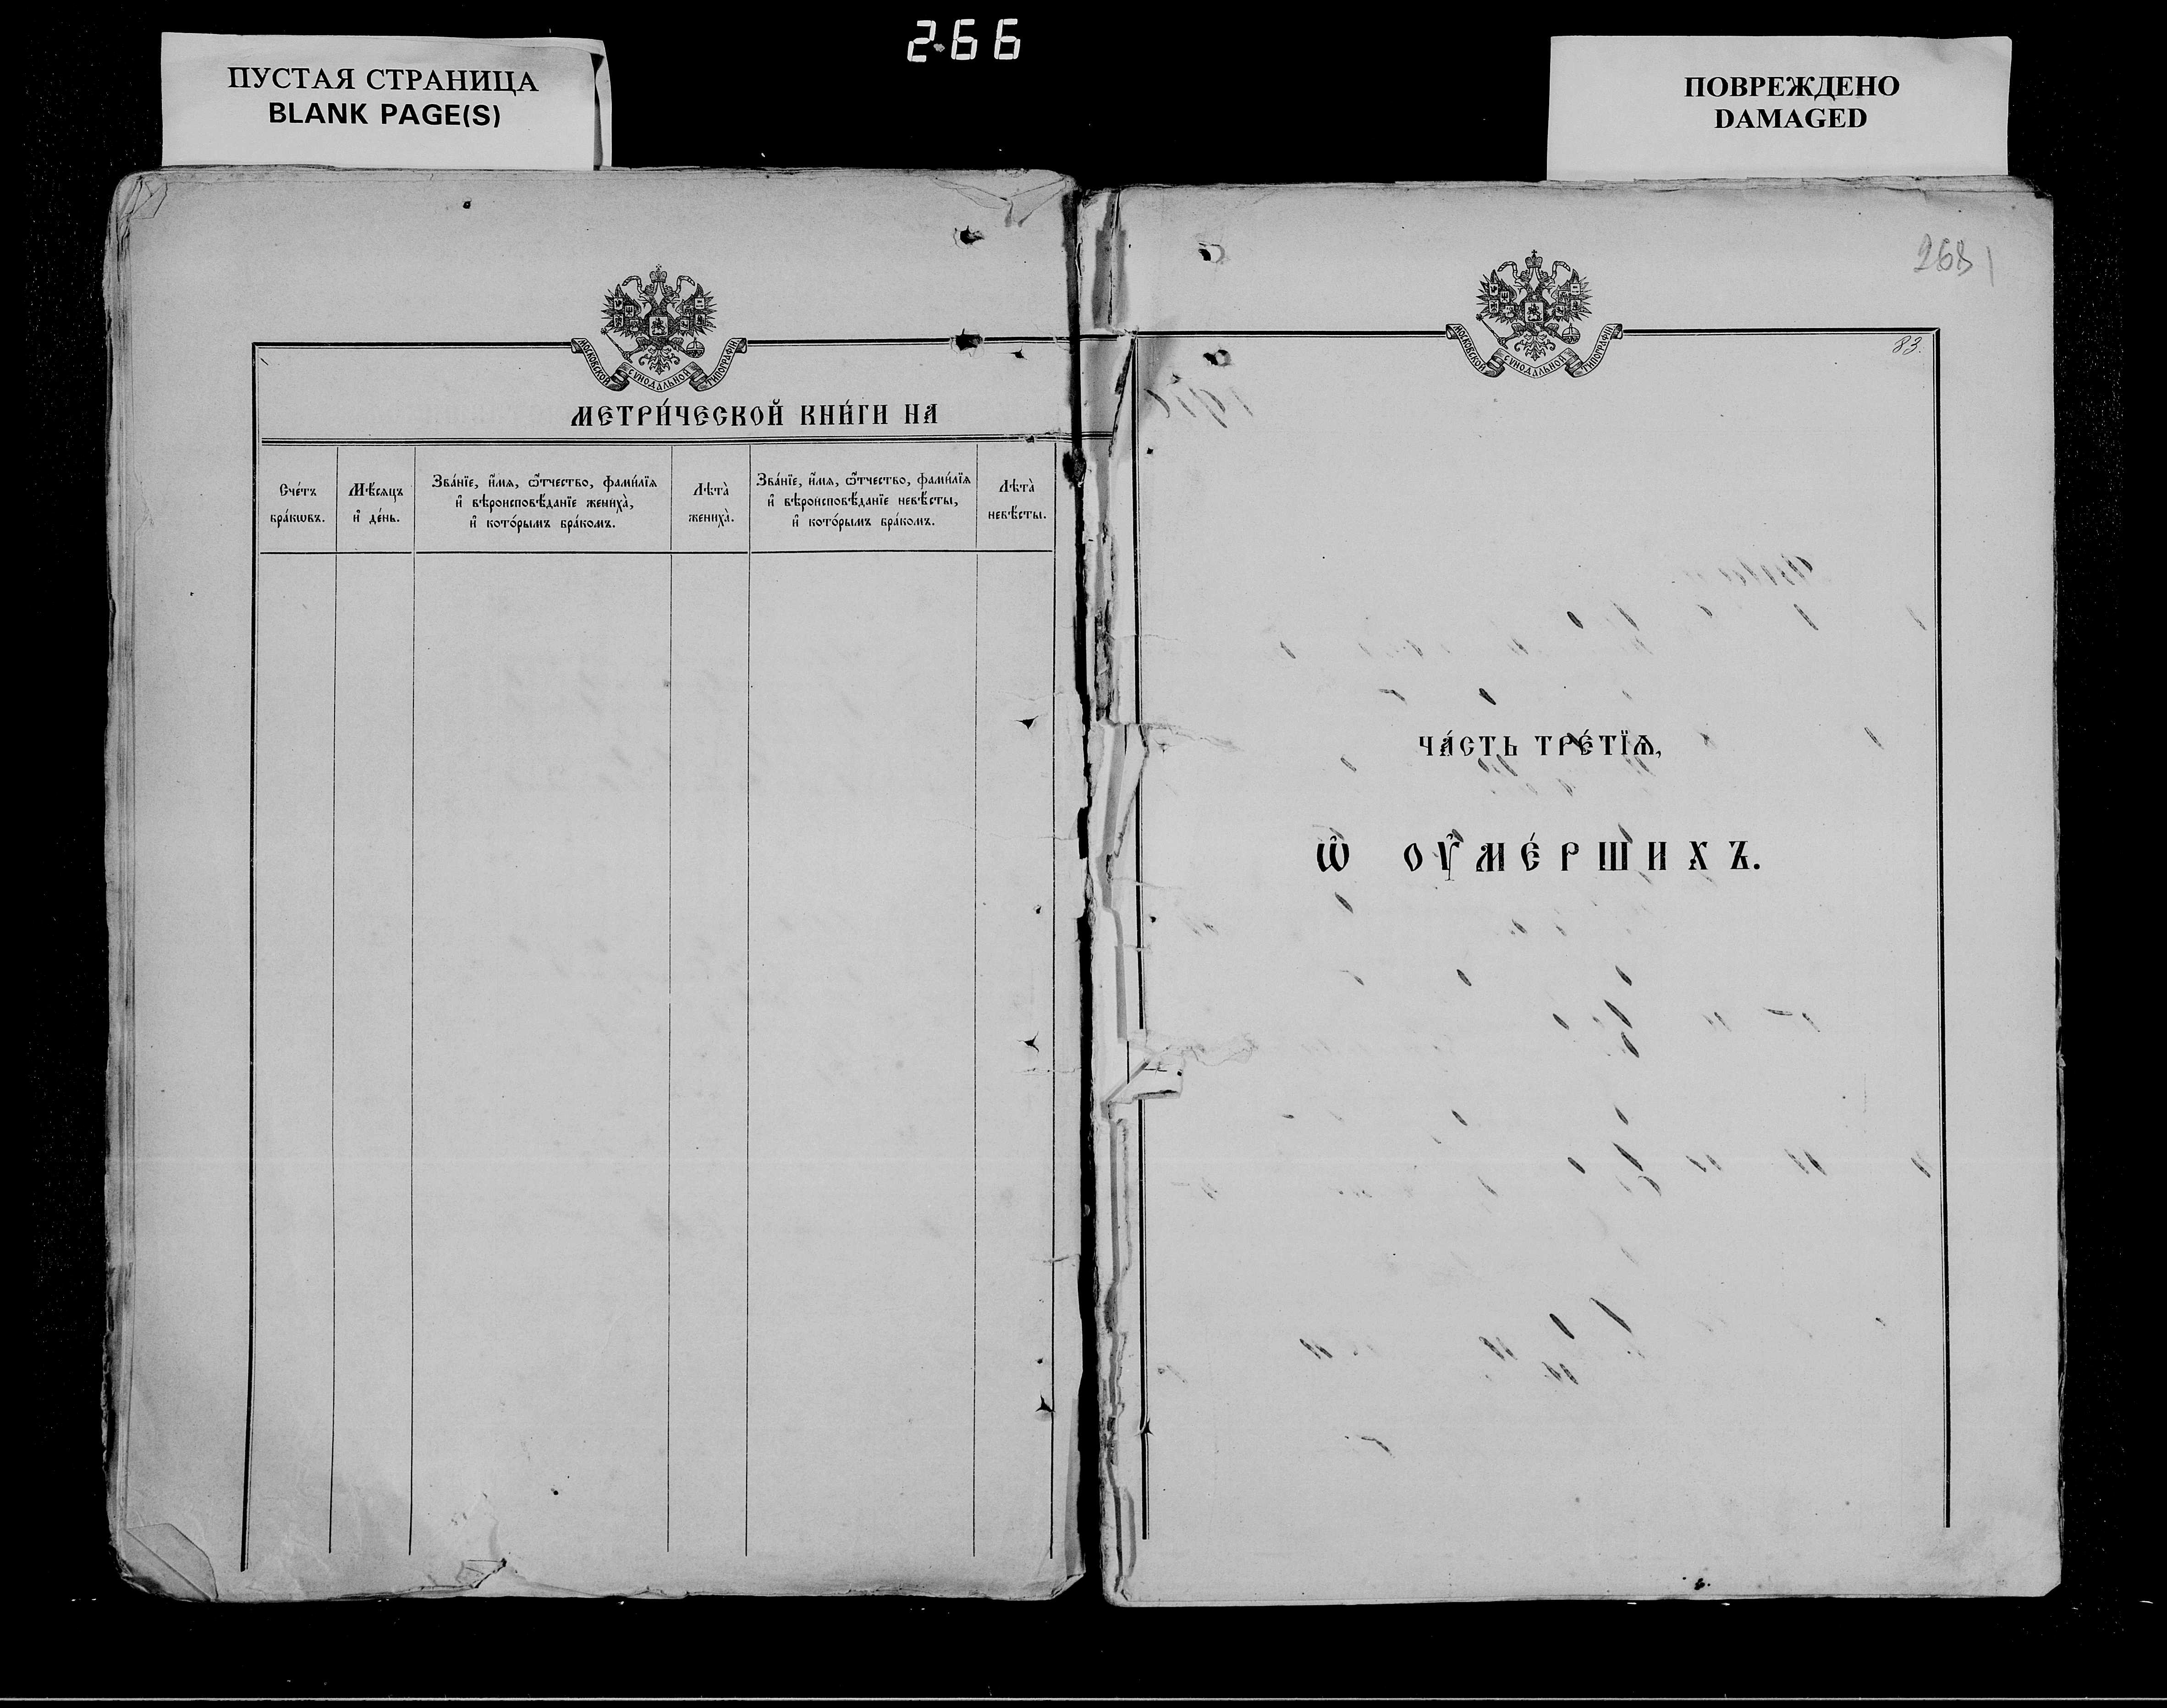 266
ПУСТАЯ СТРАНИЦА
BLANK PAGE(S)
МОСКОВСКОЙ СѴНОДАЛЬНОЙ ТИПОГРАФІИ
МЕТРИ́ЧЕСКОЙ КНИ́ГИ НА
Сче́тъ
бра́кωвъ.
Мѣ́сяцъ
и҆ де́нь.
Зва́нїе, и҆́мѧ, ѻ҆́тчество, фами́лїѧ
и҆ вѣроисповѣ́данїе жениха̀,
и҆ кото́рымъ бра́комъ.
Лѣта̀
жениха̀.
Зва́нїе, и҆́мѧ, ѻ҆́тчество, фами́лїѧ
и҆ вѣроисповѣ́данїе невѣ́сты,
и҆ кото́рымъ бра́комъ.
Лѣта̀
невѣ́сты.
ПОВРЕЖДЕНО
DAMAGED
268
МОСКОВСКОЙ СѴНОДАЛЬНОЙ ТИПОГРАФІИ
83.
ЧА́СТЬ ТРЕ́ТЇѦ,
Ѽ ОУ҆МЕ́РШИХЪ.